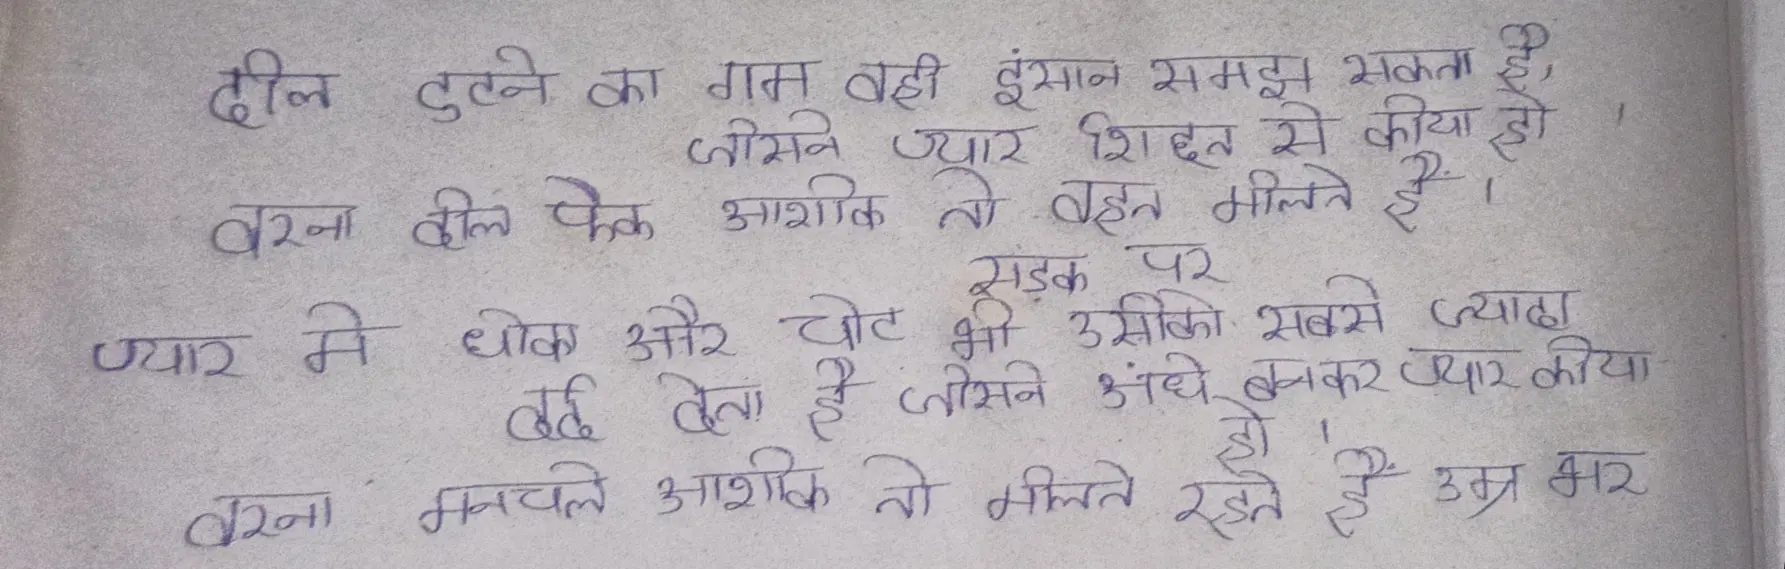 दील टुटने का गम वही इंसान समझ सकता है,
जीसने प्यार शिद्दत से कीया हो ।
वरना दील फेक आशीक तो बहुत मीलते हैं ।
सड़क पर
प्यार मे धोका और चोट भी उसीको सबसे ज्यादा
दर्द देता है जीसने अंधे बनकर प्यार कीया
हो ।
वरना मनचले आशीक तो मीलते रहते हैं उम्र भर